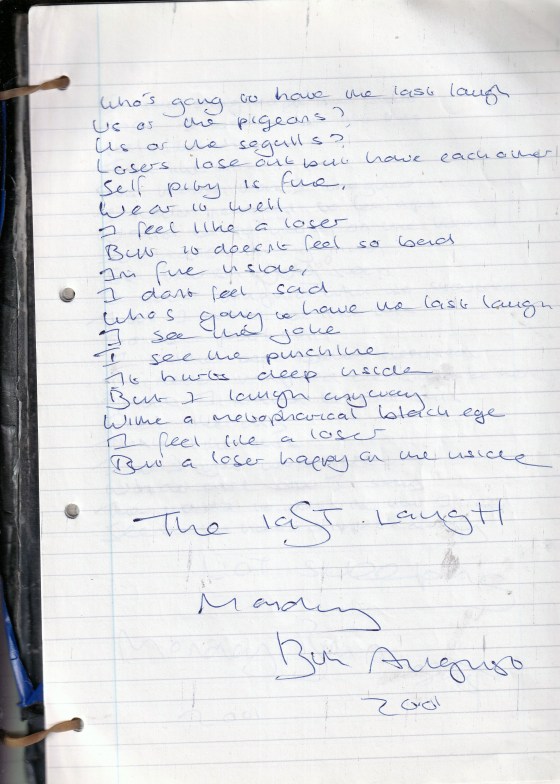 Who's going to have the last laugh
Us or the pigeons?
Us or the segulls?
Losers lose out but have each other
Self pity is fine,
Wear it well
I feel like a loser
But it doesn't feel so bad
Im fine inside,
I dont feel sad
Who's going to have the last laugh
I see the joke
I see the punchline
It hurts deep inside
But I laugh anyway
With a metaphorical black eye
I feel like a loser
But a loser happy on the inside
The last Laugh
Monday
Bank August
2001